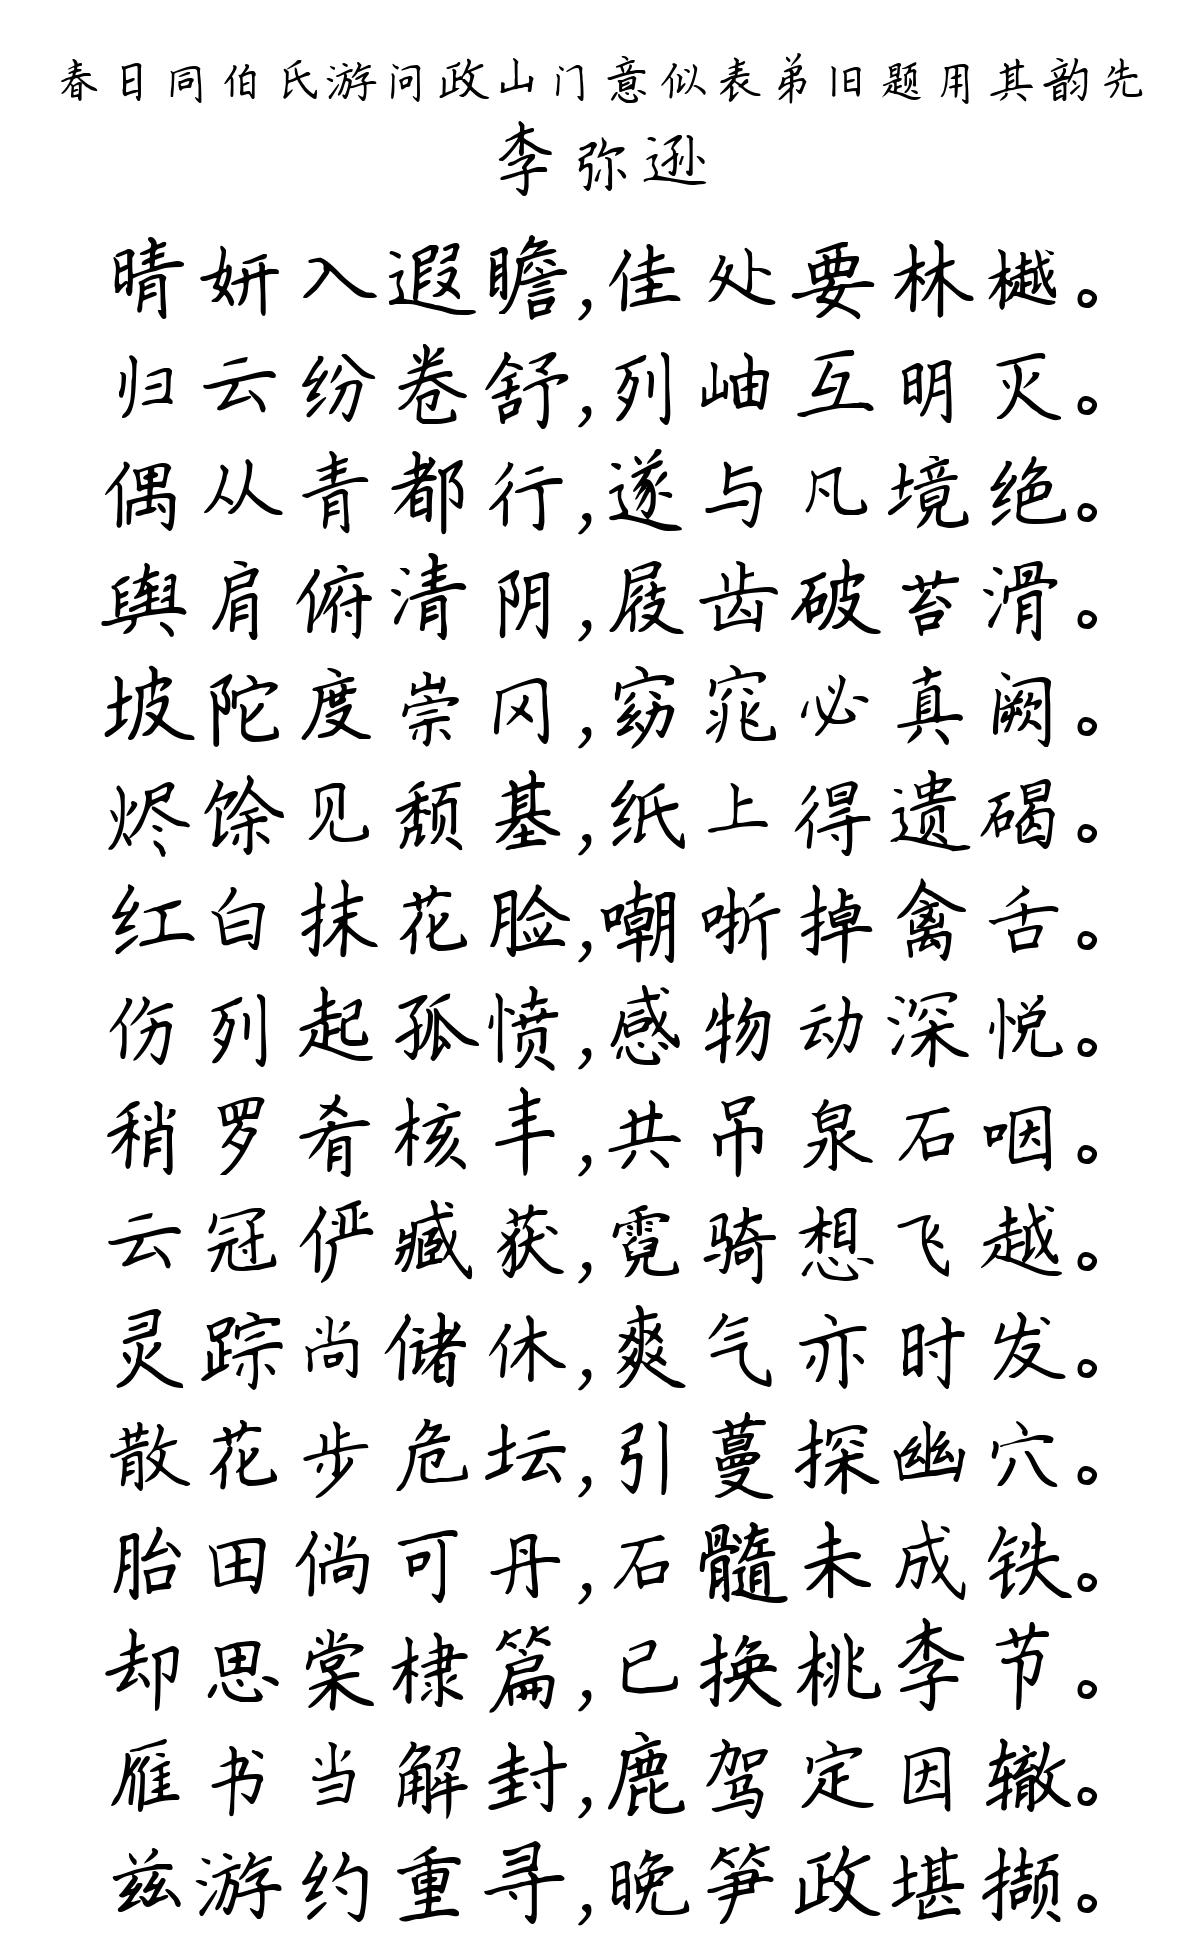 春日同伯氏游问政山门意似表弟旧题用其韵先
李弥逊
晴妍入遐瞻,佳处要林樾。
归云纷卷舒,列岫互明灭。
偶从青都行,遂与凡境绝。
舆肩俯清阴,屐齿破苔滑。
坡陀度崇冈,窈窕必真阙。
烬馀见颓基,纸上得遗碣。
红白抹花脸,嘲哳掉禽舌。
伤列起孤愤,感物动深悦。
稍罗肴核丰,共吊泉石咽。
云冠俨臧获,霓骑想飞越。
灵踪尚储休,爽气亦时发。
散花步危坛,引蔓探幽穴。
胎田倘可丹,石髓未成铁。
却思棠棣篇,已换桃李节。
雁书当解封,鹿驾定因辙。
兹游约重寻,晚笋政堪撷。